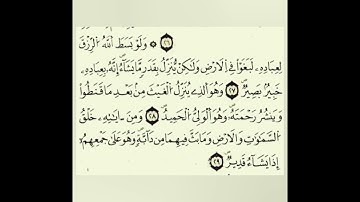 ٢٦ ۞ وَلَوْ بَسَطَ اَللَّهُ اُلرِّزْقَ
لِعِبَادِهِۦ لَبَغَوْاْ فِے اِلَارْضِ وَلَٰكِنْ يُّنَزِّلُ بِقَدَرٍ مَّا يَشَآءُ إِنَّهُۥ بِعِبَادِهِۦ
خَبِيرُۢ بَصِيرٌ ٢٧ وَهُوَ اَلذِے يُنَزِّلُ اُلْغَيْثَ مِنۢ بَعْدِ مَا قَنَطُواْ
وَيَنشُرُ رَحْمَتَهُۥ وَهُوَ اَلْوَلِيُّ اُلْحَمِيدُ ٢٨ وَمِنَ ايَٰتِهِۦ خَلْقُ
اُلسَّمَٰوَٰتِ وَالَارْضِ وَمَا بَثَّ فِيهِمَا مِن دَآبَّةٍ وَهُوَ عَلَىٰ جَمْعِهِمُۥٓ
إِذَا يَشَآءُ قَدِيرٌ ٢٩